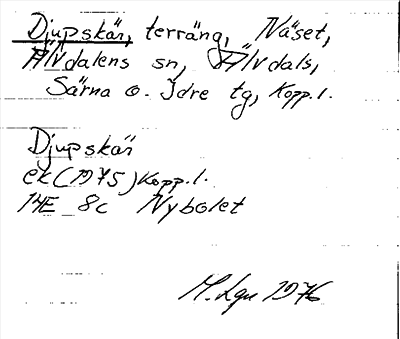 Djupskär, terräng, Näset,
Älvdalens sn, Älvdals,
Särna o. Idre tg, Kopp.l.
Djupskär
ek (1975) Kopp.l.
14E 8c Nybolet
M. Lgn 1976